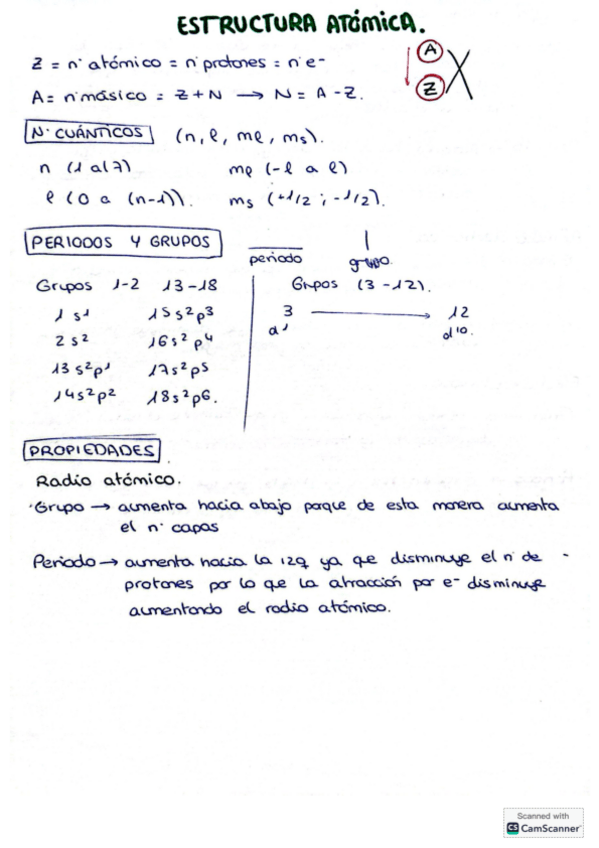 ESTRUCTURA ATÓMICA.
Z = nº atómico = nº protones = nº e-
A = nº másico = Z + N → N = A - Z.
A
Z X
Nº CUÁNTICOS (n, l, ml, ms).
n (1 al 7) ml (-l a l)
l (0 a (n-1)). ms (+1/2 ; -1/2).
PERIODOS Y GRUPOS
periodo grupo.
Grupos 1-2 13-18
1 s1 15 s2p3
2 s2 16 s2p4
13 s2p1 17 s2p5
14 s2p2 18 s2p6.
Grupos (3-12).
3 → 12
d1 d10.
PROPIEDADES
Radio atómico.
·Grupo → aumenta hacia abajo porque de esta manera aumenta
el nº capas
Periodo → aumenta hacia la izq ya que disminuye el nº de
protones por lo que la atracción por e- disminuye
aumentando el radio atómico.
Scanned with
CS CamScanner